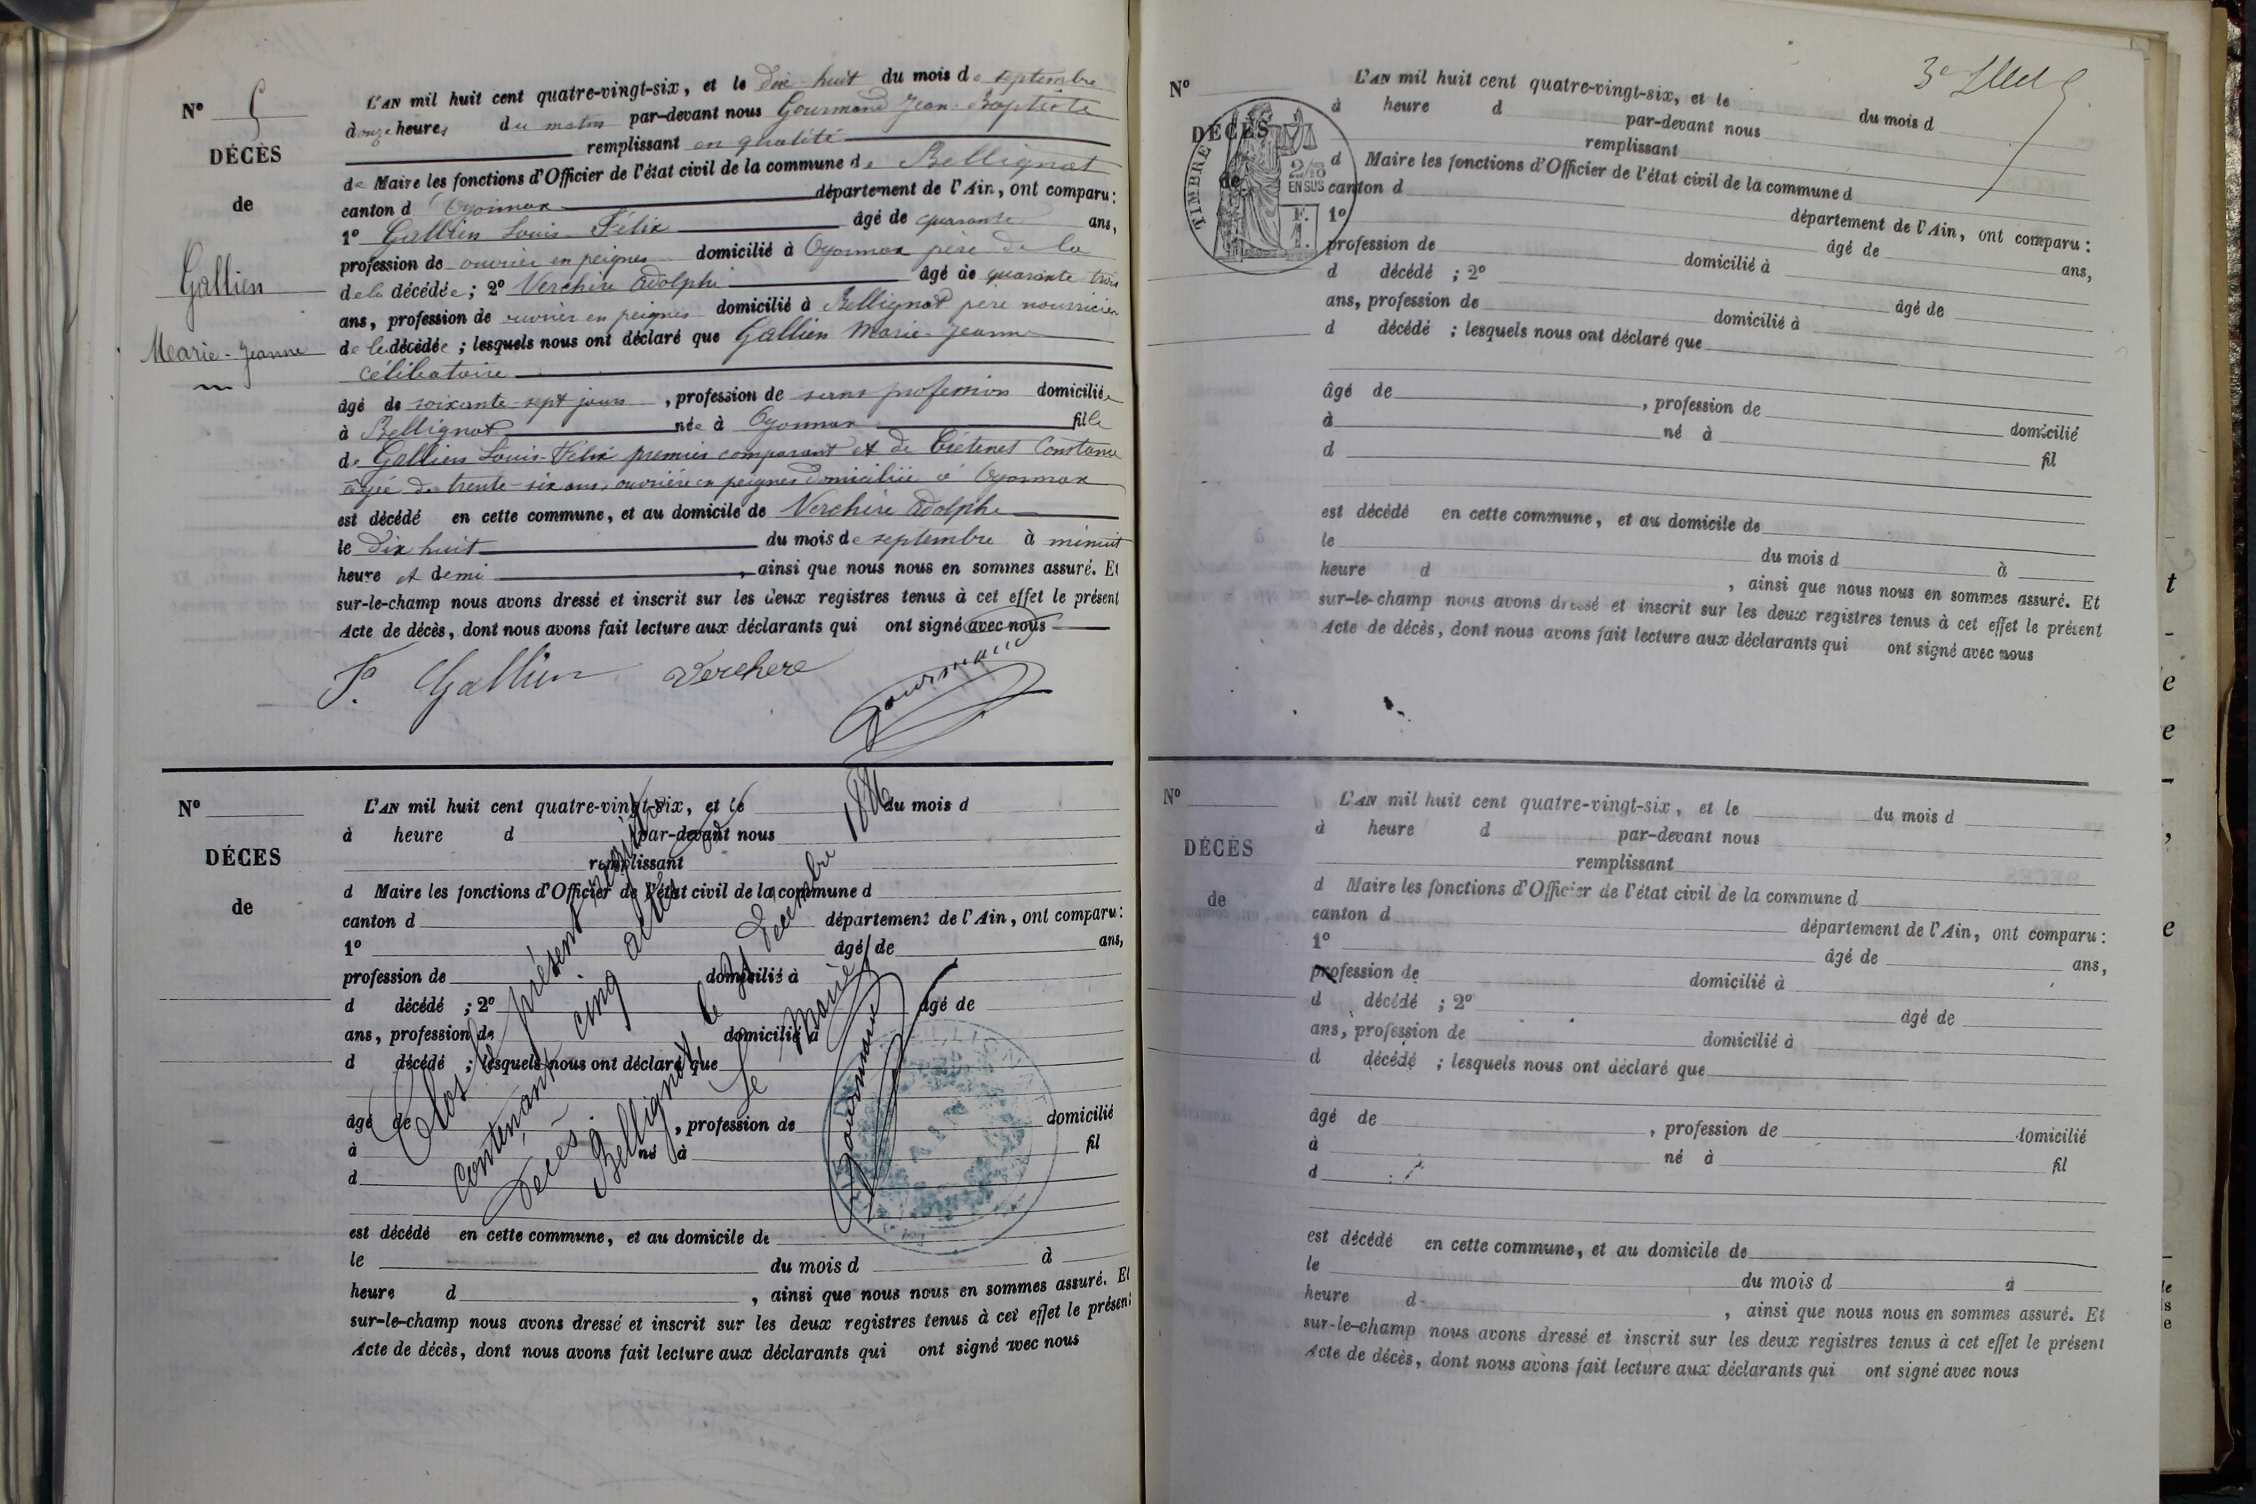 N° 5
DÉCÈS
de
Gallien
Marie-Jeanne
L'AN mil huit cent quatre-vingt-six, et le dix huit du mois de septembre
à onze heures du matin par-devant nous Gourmand Jean-Baptiste
remplissant en qualité
de Maire les fonctions d'Officier de l'état civil de la commune de Bellignat
canton d'Oyonnax département de l'Ain, ont comparu :
1° Gallien Louis-Félix âgé de quarante ans,
profession de ouvrier en peignes domicilié à Oyonnax père de la
de la décédée ; 2° Verchère Adolphe âgé de quarante trois
ans, profession de ouvrier en peignes domicilié à Bellignat père nourricier
de la décédée ; lesquels nous ont déclaré que Gallien Marie-Jeanne
célibataire
âgé de soixante-sept jours, profession de sans profession domiciliée
à Bellignat née à Oyonnax fille
de Gallien Louis-Félix premier comparant et de Constance
âgée de trente-six ans, ouvrière en peignes domiciliée à Oyonnax
est décédé en cette commune, et au domicile de Verchère Adolphe
le dix huit du mois de septembre à minuit
heure et demi, ainsi que nous nous en sommes assuré. Et
sur-le-champ nous avons dressé et inscrit sur les deux registres tenus à cet effet le présent
Acte de décès, dont nous avons fait lecture aux déclarants qui ont signé avec nous
F. Gallien Verchere Gourmand
N°
DÉCÈS
de
L'AN mil huit cent quatre-vingt-six, et le du mois d
à heure d par-devant nous
remplissant
d Maire les fonctions d'Officier de l'état civil de la commune d
canton d département de l'Ain, ont comparu :
1° âgé de ans,
profession de domicilié à
d décédé ; 2° âgé de
ans, profession de domicilié à
d décédé ; lesquels nous ont déclaré que
âgé de , profession de domicilié
à né à fil
d
est décédé en cette commune, et au domicile de
le du mois d à
heure d , ainsi que nous nous en sommes assuré. Et
sur-le-champ nous avons dressé et inscrit sur les deux registres tenus à cet effet le présent
Acte de décès, dont nous avons fait lecture aux déclarants qui ont signé avec nous
Clos le présent registre
contenant cinq actes de
décès.
Bellignat le 31 décembre 1886
Le Maire
Gourmand
3e
N°
DÉCÈS
de
TIMBRE
2/10
EN SUS
L'AN mil huit cent quatre-vingt-six, et le du mois d
à heure d par-devant nous
remplissant
d Maire les fonctions d'Officier de l'état civil de la commune d
canton d département de l'Ain, ont comparu :
1° âgé de ans,
profession de domicilié à
d décédé ; 2° âgé de
ans, profession de domicilié à
d décédé ; lesquels nous ont déclaré que
âgé de , profession de domicilié
à né à fil
d
est décédé en cette commune, et au domicile de
le du mois d à
heure d , ainsi que nous nous en sommes assuré. Et
sur-le-champ nous avons dressé et inscrit sur les deux registres tenus à cet effet le présent
Acte de décès, dont nous avons fait lecture aux déclarants qui ont signé avec nous
N°
DÉCÈS
de
L'AN mil huit cent quatre-vingt-six, et le du mois d
à heure d par-devant nous
remplissant
d Maire les fonctions d'Officier de l'état civil de la commune d
canton d département de l'Ain, ont comparu :
1° âgé de ans,
profession de domicilié à
d décédé ; 2° âgé de
ans, profession de domicilié à
d décédé ; lesquels nous ont déclaré que
âgé de , profession de domicilié
à né à fil
d
est décédé en cette commune, et au domicile de
le du mois d à
heure d , ainsi que nous nous en sommes assuré. Et
sur-le-champ nous avons dressé et inscrit sur les deux registres tenus à cet effet le présent
Acte de décès, dont nous avons fait lecture aux déclarants qui ont signé avec nous